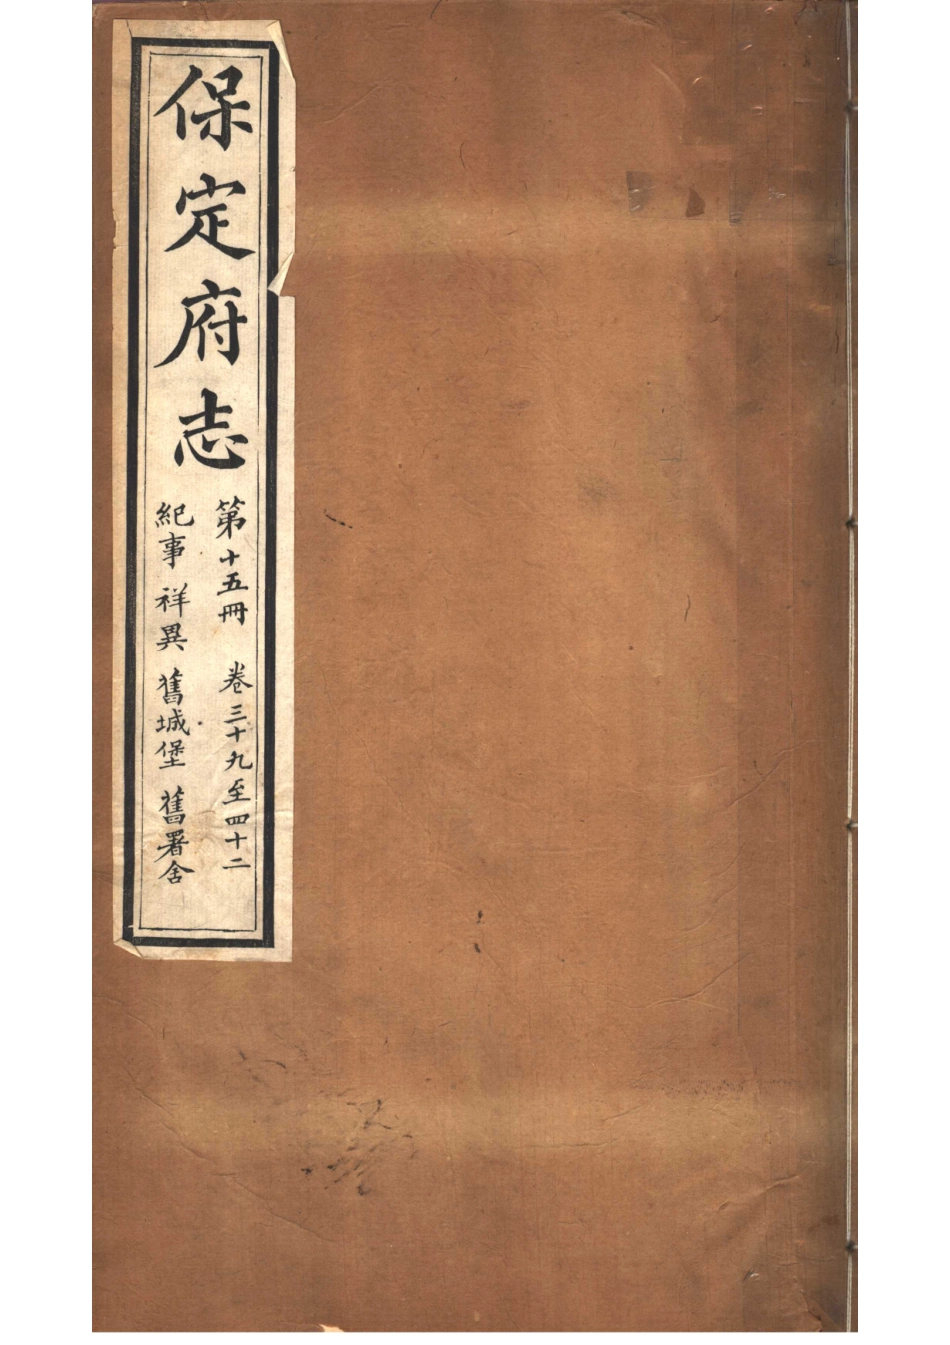 保定府志
第十五冊 卷三十九至四十二
紀事 祥異 舊城堡 舊署舍